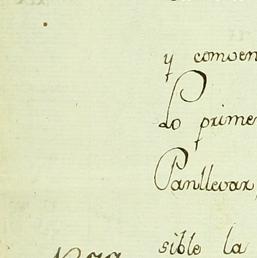 y conven
Lo prime
Panllevar,
sible la